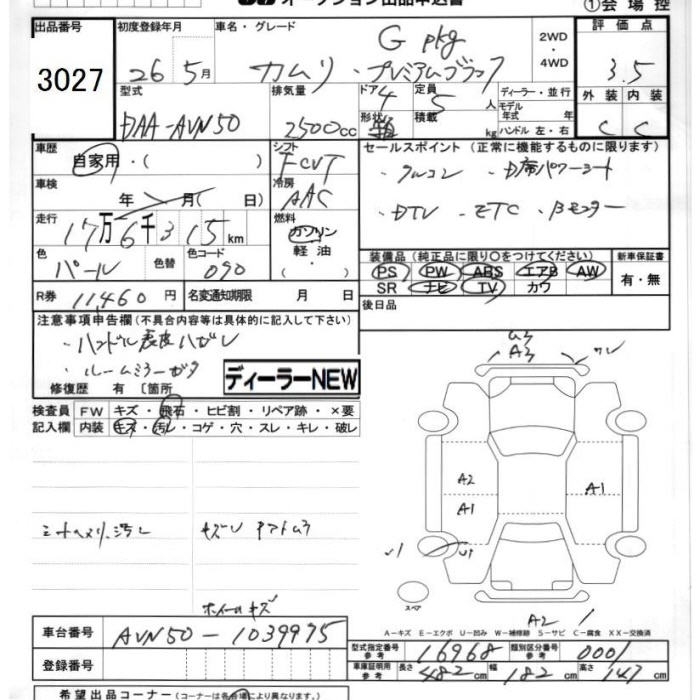 オークション出品申込書 ①会場控
出品番号 初度登録年月 車名・グレード 評価点
3027 26年 5月 G pkg 2WD・4WD 3.5
カムリ・プレミアムブラック
型式 排気量 ドア 4 定員 5人 ディーラー・並行 外装 内装
DAA-AVN50 2500cc 形状 箱 積載 kg モデル年式 年 ハンドル 左・右 C C
車歴 シフト セールスポイント(正常に機能するものに限ります)
自家用・( ) FCVT ・クルコン ・D席パワーシート
車検 年 月( 日) 冷房 AAC ・DTV ・ETC ・Bモニター
走行 17万6千315km 燃料 ガソリン 軽油・( )
装備品(純正品に限り○をつけてください) 新車保証書
色 パール 色替 色コード 090 PS PW ABS エアB AW 有・無
SR ナビ TV カワ
R券 11,460円 名変通知期限 月 日 後日品
注意事項申告欄(不具合内容等は具体的に記入して下さい)
・ハンドル表皮ハガレ
・ルームミラーガタ
修復歴 有 〔箇所 ディーラーNEW
検査員 FW キズ・飛石・ヒビ割・リペア跡・×要
記入欄 内装 キズ・汚レ・コゲ・穴・スレ・キレ・破レ
A3
A2 A1
A1
U1
スペア
シートヘリ、汚レ
ホイールキズ
A2
A-キズ E-エクボ U-凹み W-補修跡 S-サビ C-腐食 XX-交換済
車台番号 AVN50-1039975 型式指定番号 参考 16968 類別区分番号 参考 0001
登録番号 車庫証明用 参考 長さ 482cm 幅 182cm 高さ 147cm
希望出品コーナー(コーナーは各会場により異なります。)